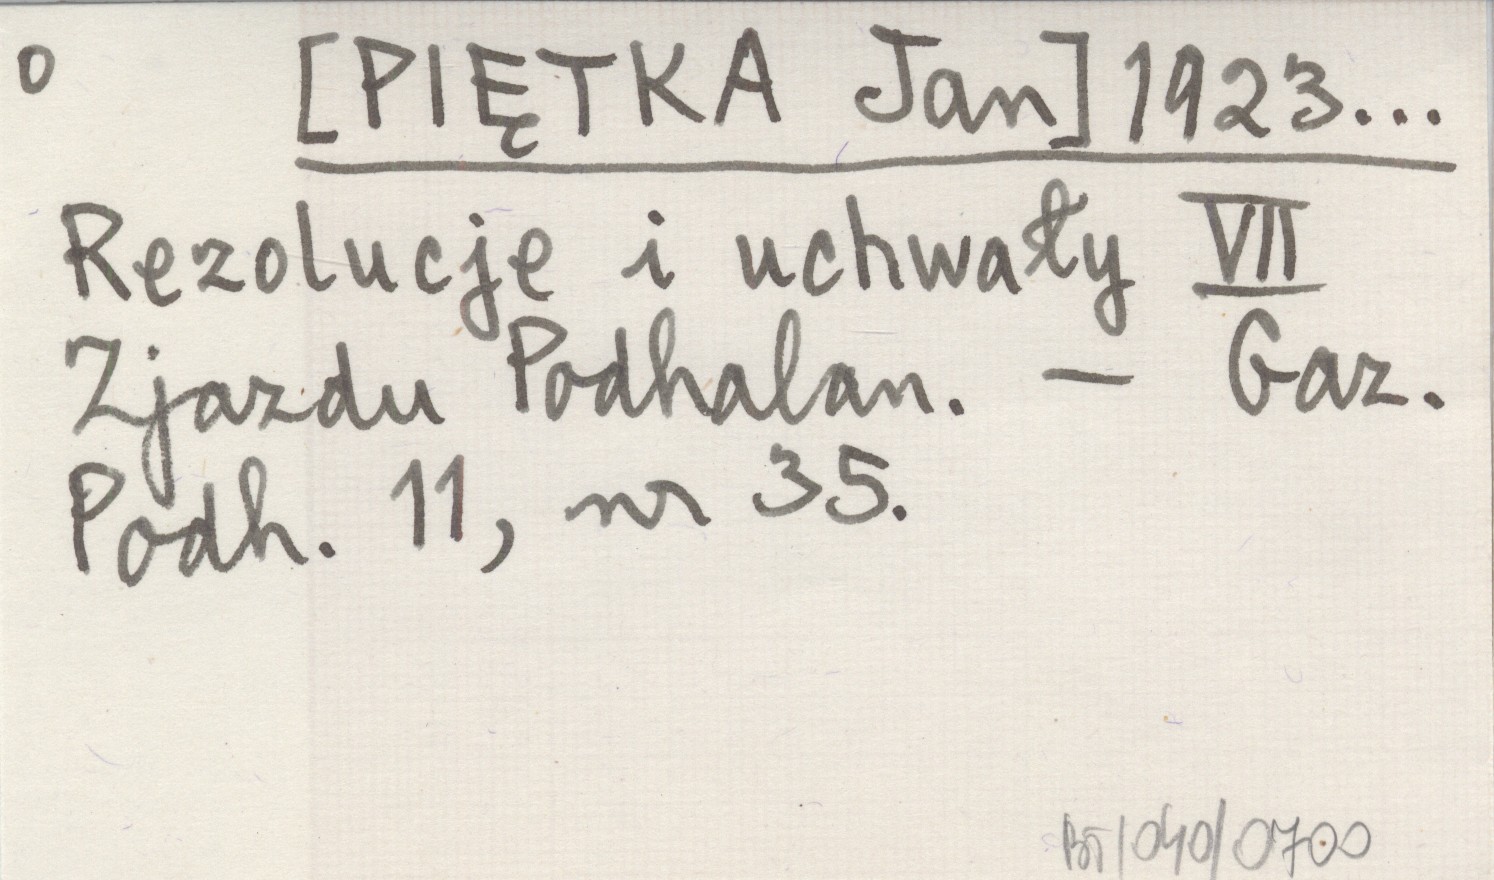 o [PIĘTKA Jan] 1923...
Rezolucje i uchwały VII
Zjazdu Podhalan. — Gaz.
Podh. 11, nr 35.
BT/040/0700